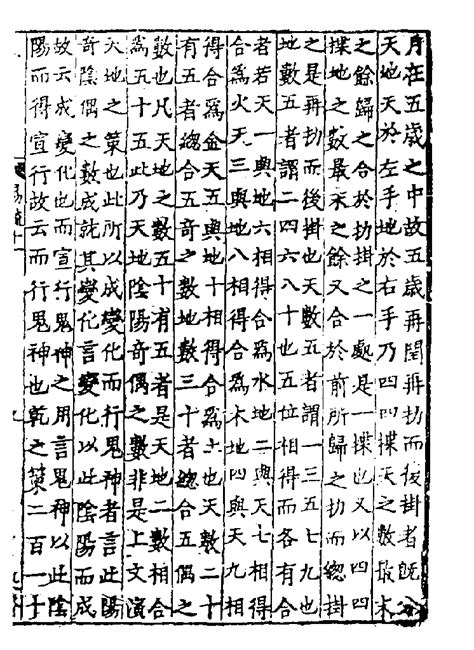 月在五歲之中故五歲再閏再扐而後掛者既分
天地天於左手地於右手乃四四揲天之數最末
之餘歸之合於扐掛之一處是一揲也又以四四
揲地之數最末之餘又合於前所歸之扐而緫掛
之是再扐而後掛也天數五者謂一三五七九也
地數五者謂二四六八十也五位相得而各有合
者若天一與地六相得合爲水地二與天七相得
合爲火天三與地八相得合爲木地四與天九相
得合爲金天五與地十相得合爲土也天數二十
有五者緫合五奇之數地數三十者緫合五偶之
數也凡天地之數五十有五者是天地二數相合
爲五十五此乃天地陰陽奇偶之數非是上文演
天地之策也此所以成變化而行鬼神者言此陽
奇陰偶之數成就其變化言變化以此陰陽而成
故云成變化也而宣行鬼神之用言鬼神以此陰
陽而得宣行故云而行鬼神也乾之策二百一十
易疏十一